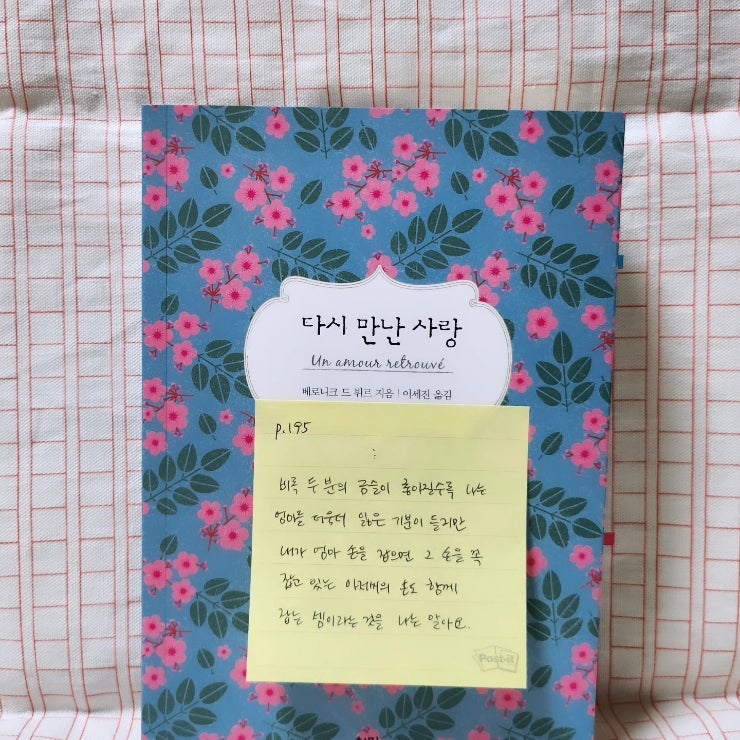 다시 만난 사랑
Un amour retrouvé
베로니크 드 뷔르 지음 | 이세진 옮김
p.195
:
비록 두 분의 금슬이 좋아질수록 나는
엄마를 더욱더 잃은 기분이 들지만
내가 엄마 손을 잡으면 그 손을 꼭
잡고 있는 아저씨의 손도 함께
잡는 셈이라는 것을 나는 알아요.
Post-it